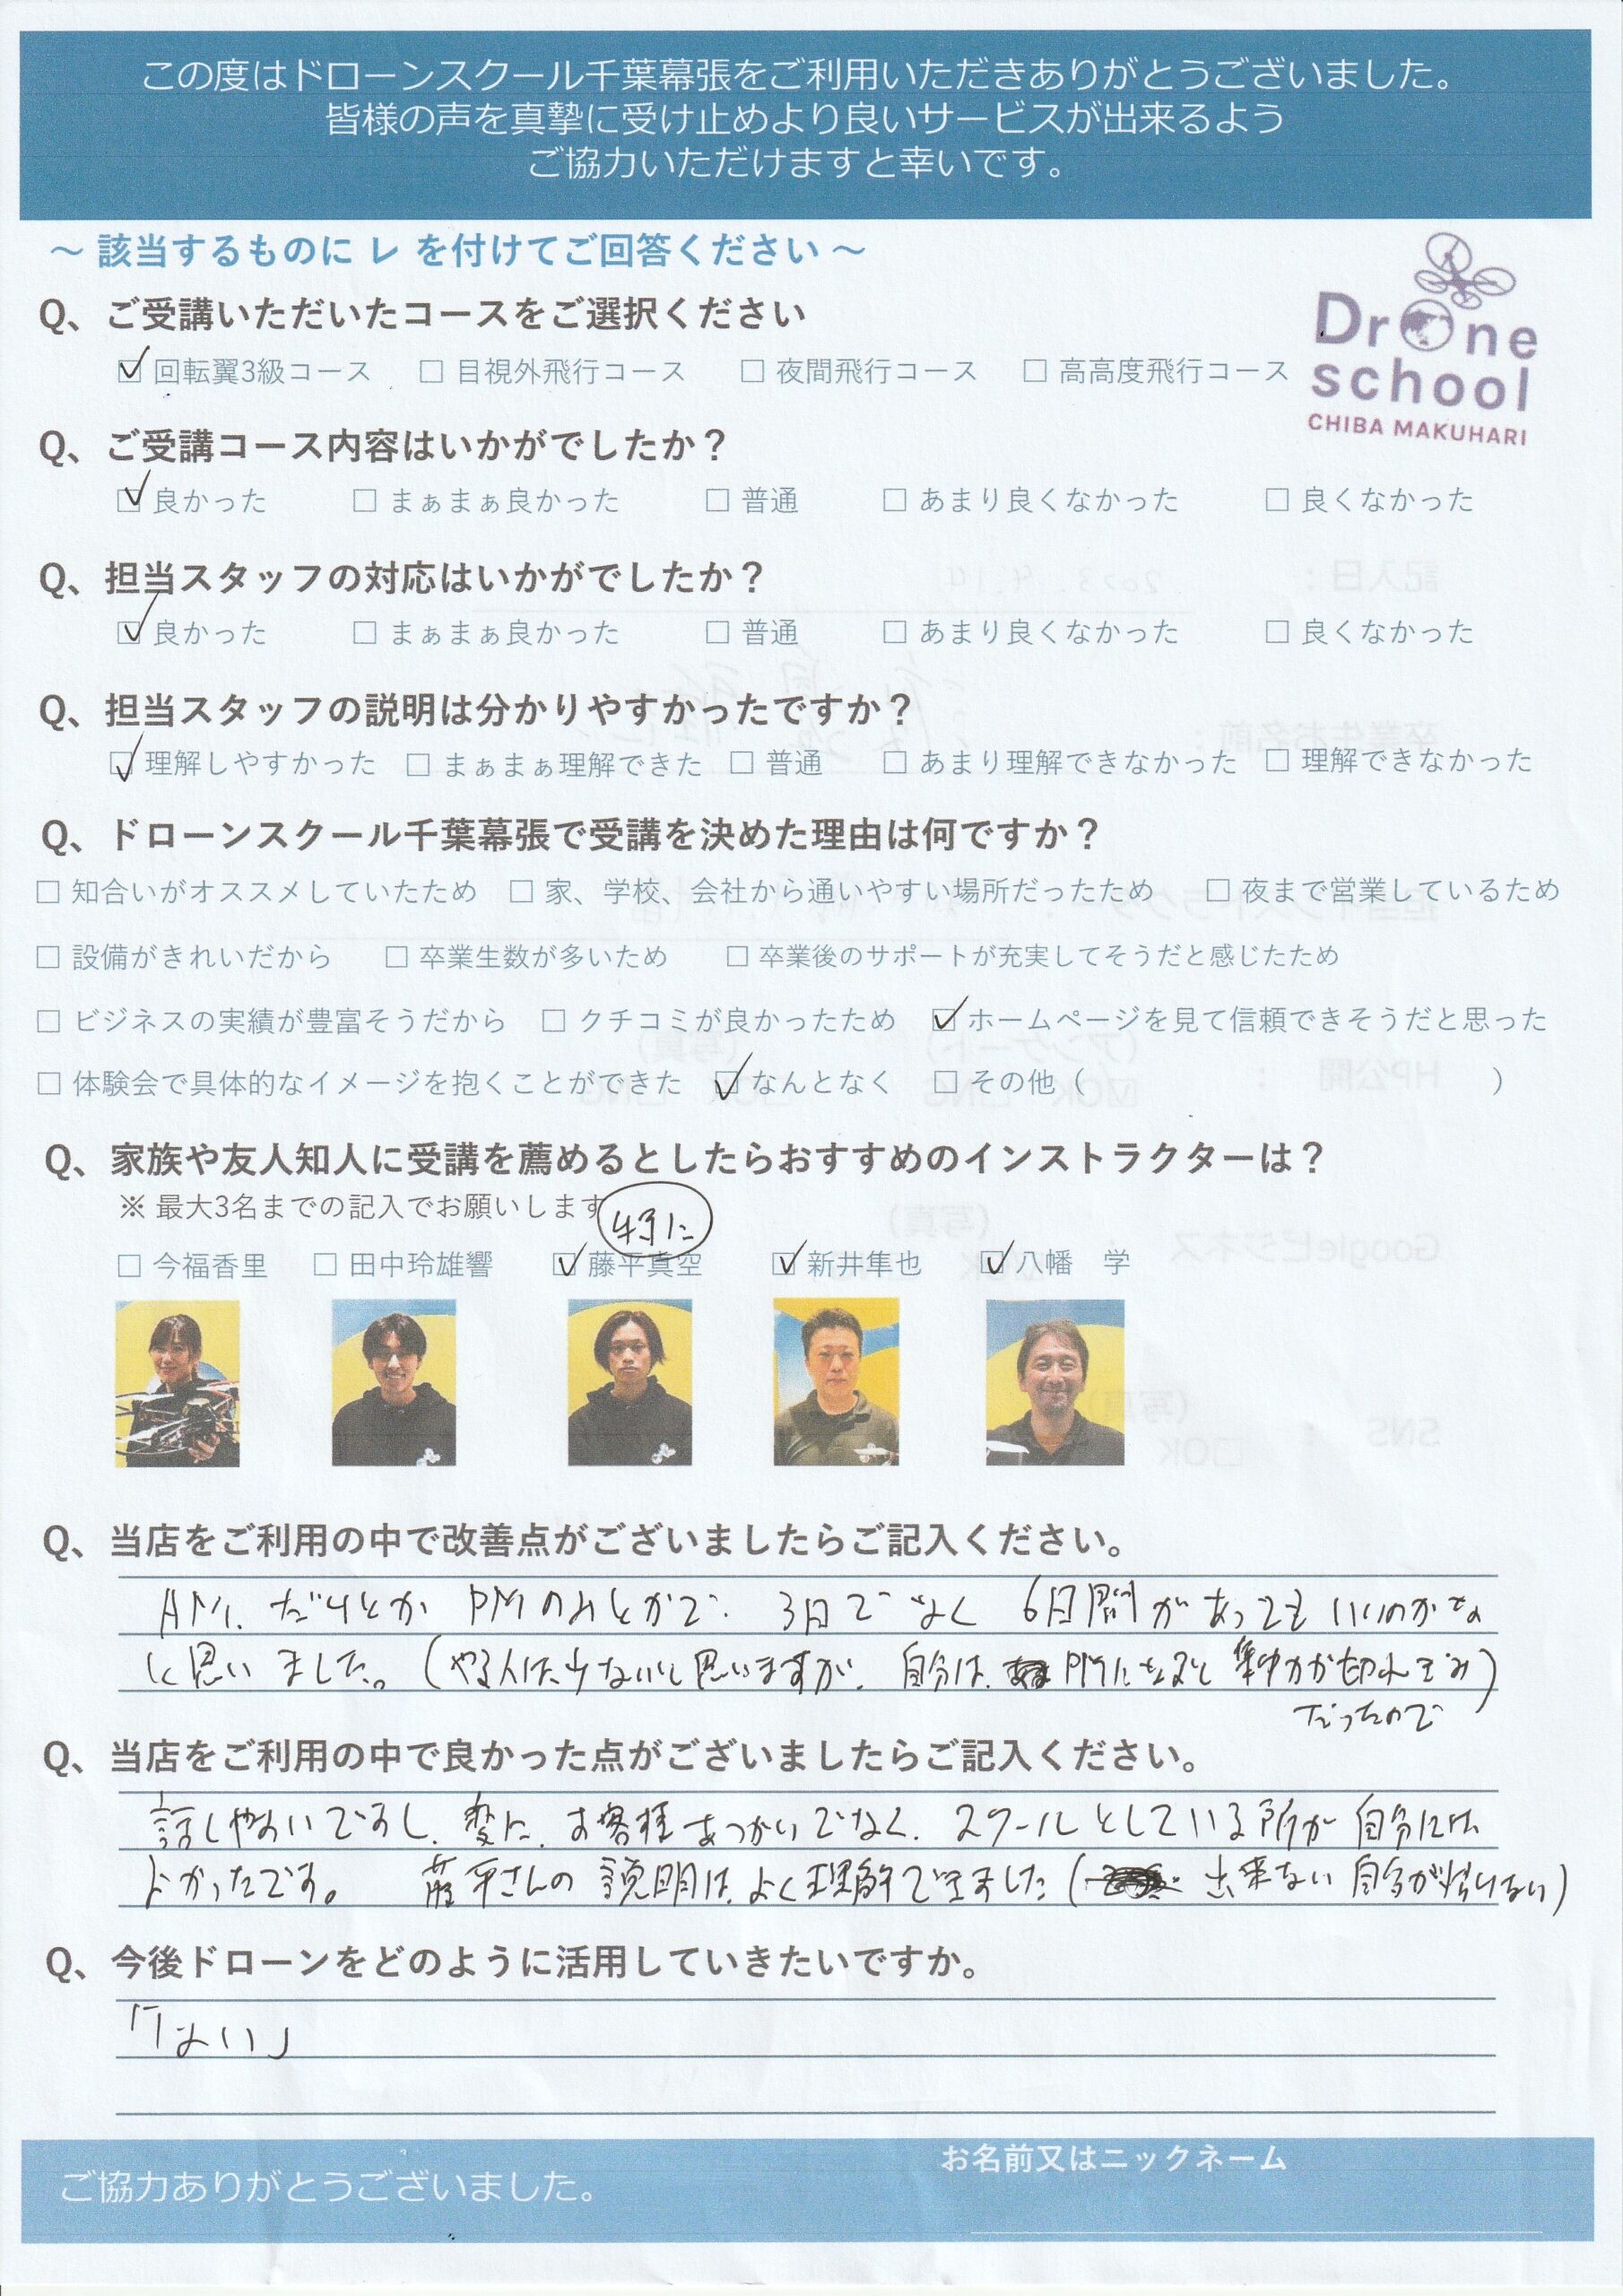 この度はドローンスクール千葉幕張をご利用いただきありがとうございました。
皆様の声を真摯に受け止めより良いサービスが出来るよう
ご協力いただけますと幸いです。
～ 該当するものに レ を付けてご回答ください ～
Drone
school
CHIBA MAKUHARI
Q、ご受講いただいたコースをご選択ください
☑ 回転翼3級コース □ 目視外飛行コース □ 夜間飛行コース □ 高高度飛行コース
Q、ご受講コース内容はいかがでしたか？
☑ 良かった □ まぁまぁ良かった □ 普通 □ あまり良くなかった □ 良くなかった
Q、担当スタッフの対応はいかがでしたか？
☑ 良かった □ まぁまぁ良かった □ 普通 □ あまり良くなかった □ 良くなかった
Q、担当スタッフの説明は分かりやすかったですか？
☑ 理解しやすかった □ まぁまぁ理解できた □ 普通 □ あまり理解できなかった □ 理解できなかった
Q、ドローンスクール千葉幕張で受講を決めた理由は何ですか？
□ 知合いがオススメしていたため □ 家、学校、会社から通いやすい場所だったため □ 夜まで営業しているため
□ 設備がきれいだから □ 卒業生数が多いため □ 卒業後のサポートが充実してそうだと感じたため
□ ビジネスの実績が豊富そうだから □ クチコミが良かったため ☑ ホームページを見て信頼できそうだと思った
□ 体験会で具体的なイメージを抱くことができた ☑ なんとなく □ その他（ ）
Q、家族や友人知人に受講を薦めるとしたらおすすめのインストラクターは？
※ 最大3名までの記入でお願いします
特に
□ 今福香里 □ 田中玲雄響 ☑ 藤平真空 ☑ 新井隼也 ☑ 八幡 学
Q、当店をご利用の中で改善点がございましたらご記入ください。
AM、だけとか PMのみとかで、3日でなく 6日間があってもいいのかな
と思いました。（やる人は少ないと思いますが、自分は、PMになると集中力が切れぎみ）
だったので
Q、当店をご利用の中で良かった点がございましたらご記入ください。
話しやすいですし、変に、お客様あつかいでなく、スクールとしている所が自分には
よかったです。 藤平さんの説明は、よく理解できました（出来ない自分が情けない）
Q、今後ドローンをどのように活用していきたいですか。
「ない」
ご協力ありがとうございました。
お名前又はニックネーム